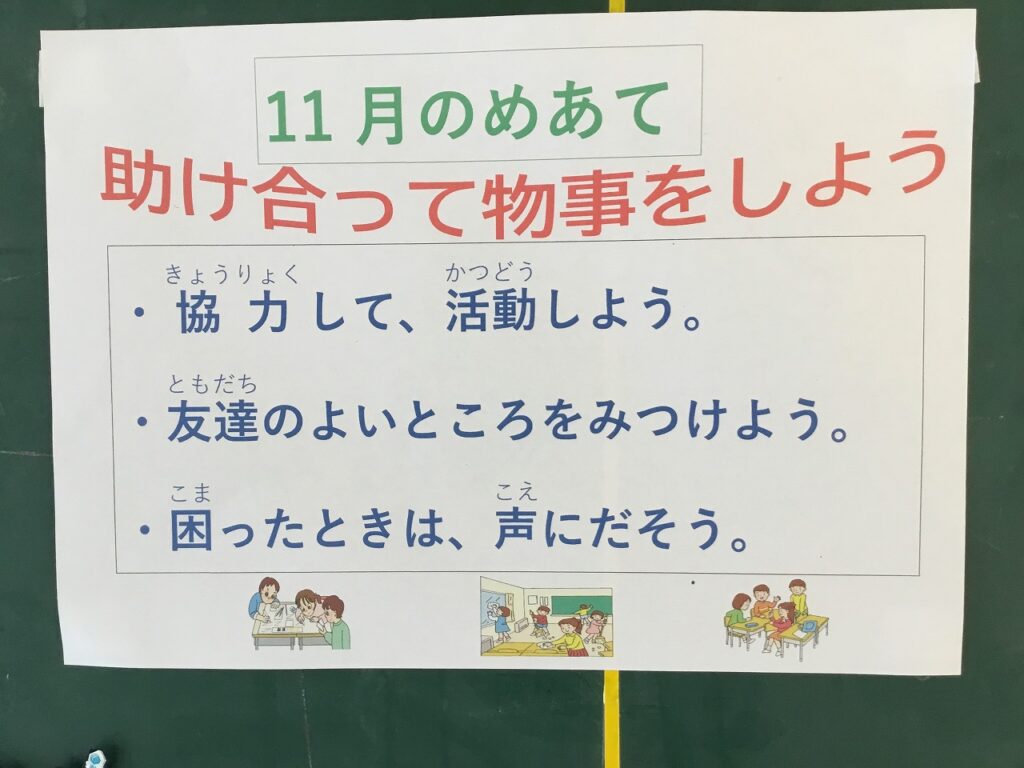 11月のめあて
助け合って物事をしよう
きょうりょく かつどう
・協力して、活動しよう。
ともだち
・友達のよいところをみつけよう。
こま こえ
・困ったときは、声にだそう。